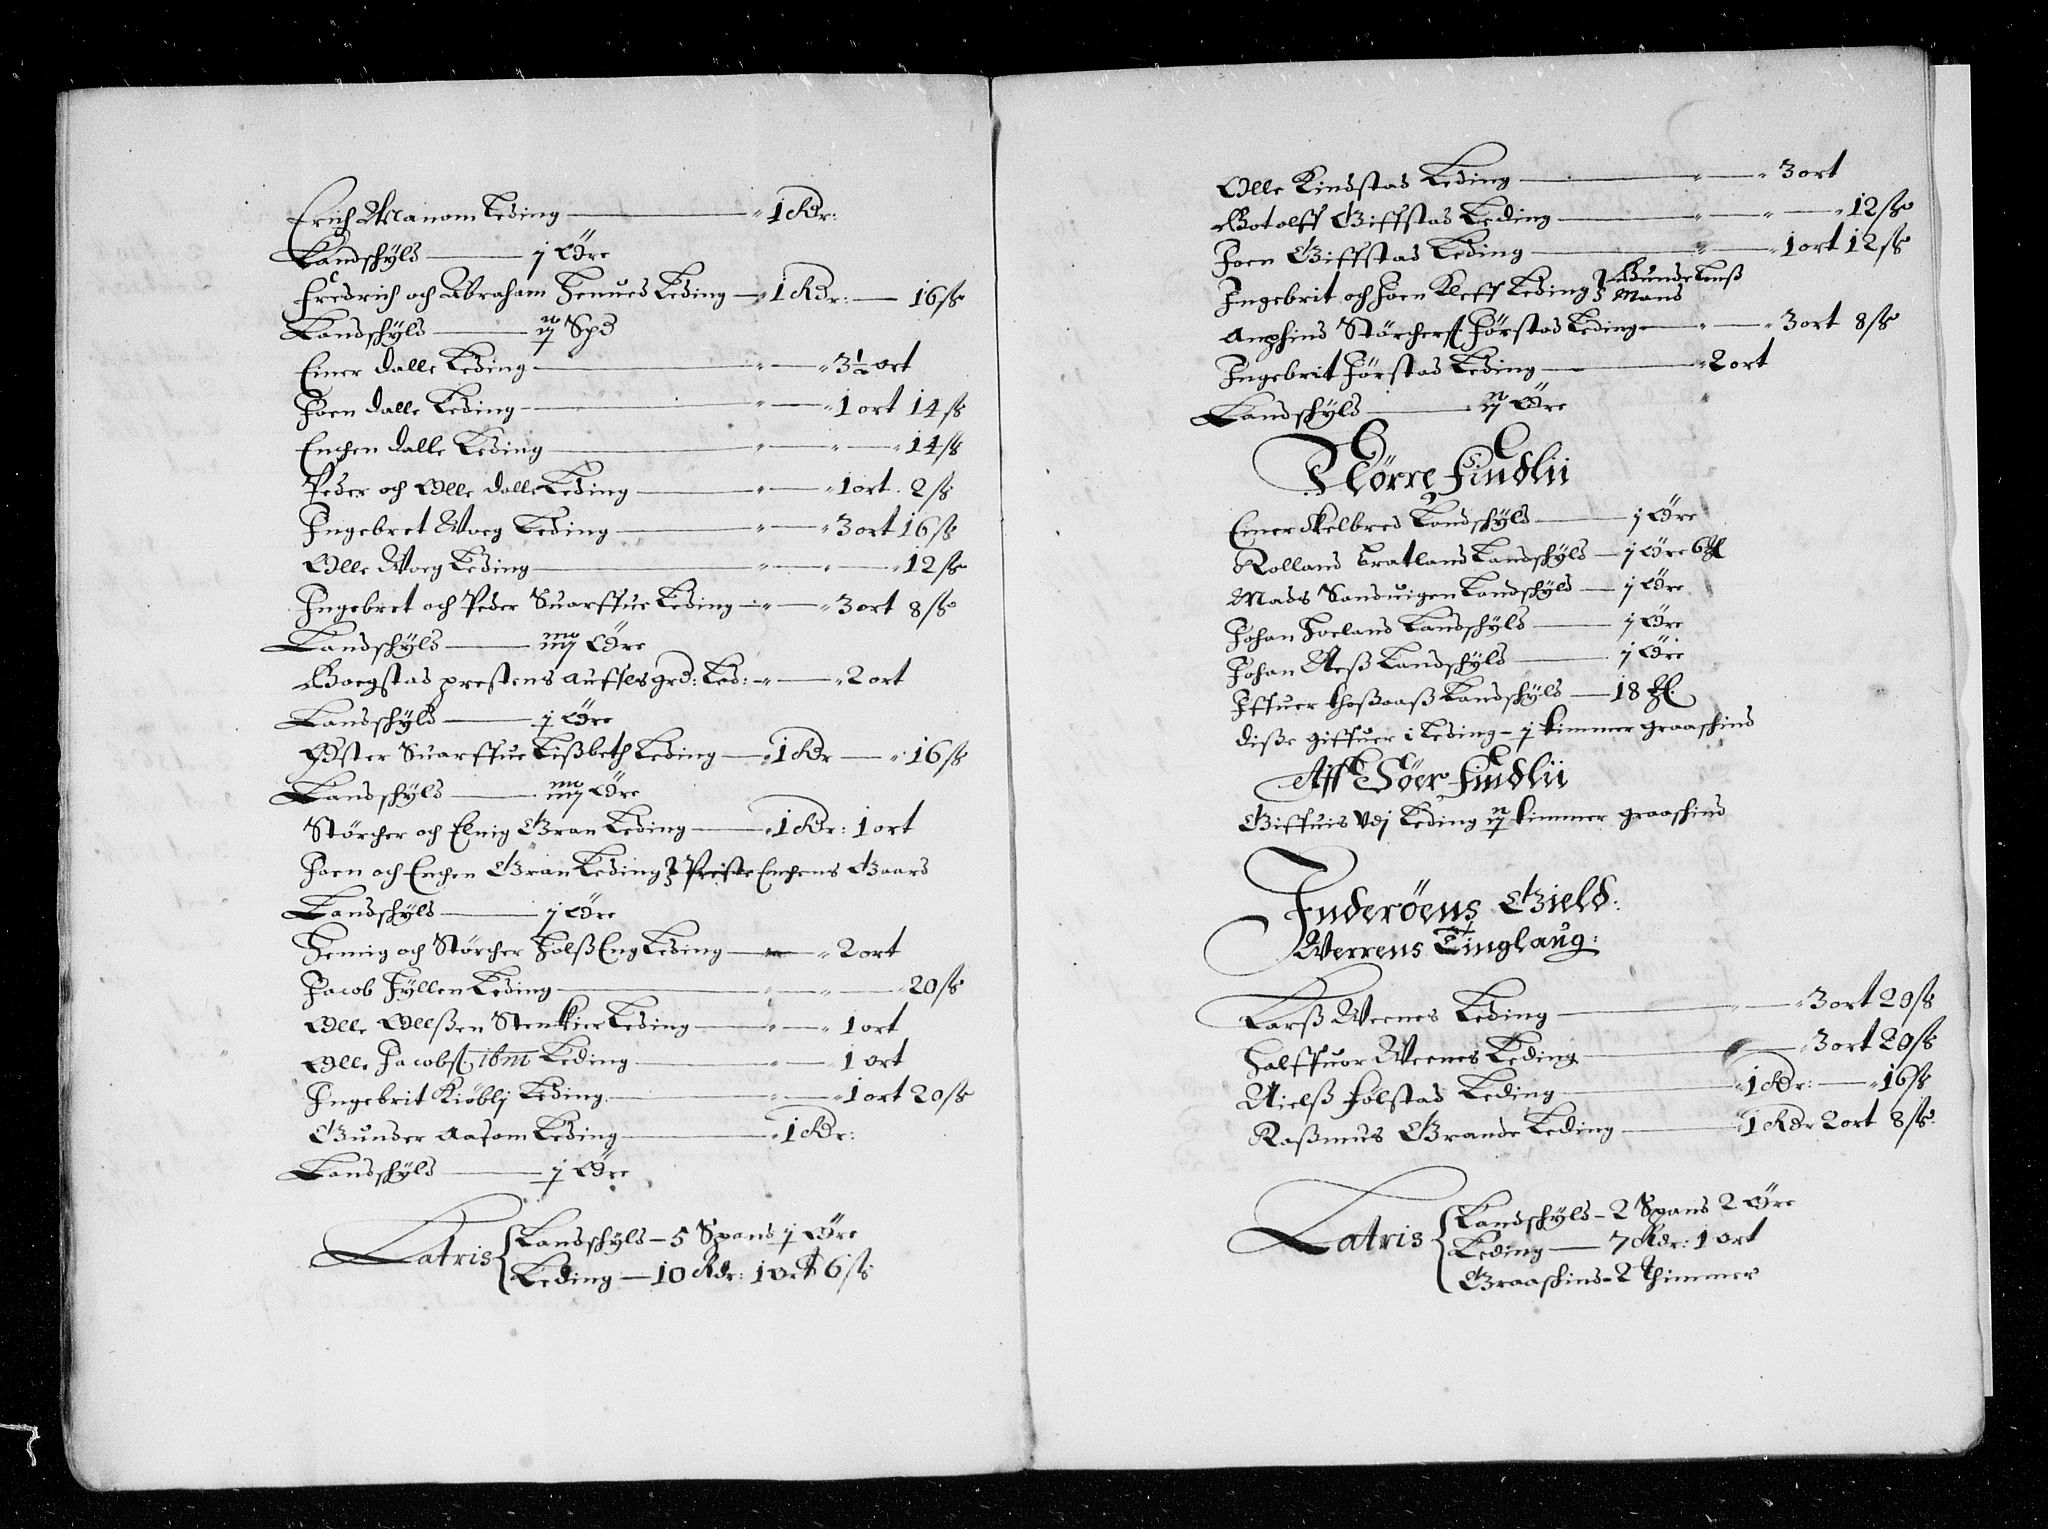 Erich Manom Leding — 1 Rdr:
Landschyld — j Øre
Fredrich och Abraham Henued Leding — 1 Rdr: — 16 ß
Landschyld — ij Spd
Einer Dalle Leding — 3½ ort
Joen Dalle Leding — 1 ort 14 ß
Enchen Dalle Leding — 14 ß
Peder och Olle Dalle Leding — 1 ort 2 ß
Ingebret Woeg Leding — 3 ort 16 ß
Olle Woeg Leding — 12 ß
Ingebret och Peder Suarffue Leding — 3 ort 8 ß
Landschyld — iij Øre
Boegstad prestens grd: Led: — 2 ort
Landschyld — j Øre
Øster Suarffue Lißbeth Leding — 1 Rdr — 16 ß
Landschyld — iij Øre
Störcher och Elnig Gran Leding — 1 Rdr: 1 ort
Joen och Enchen Gran Leding Enchens Gaard
Landschyld — j Øre
Hemig och Störcher Holß Eng Leding — 2 ort
Jacob Hyllen Leding — 20 ß
Olle Olleßen Stenkier Leding — 1 ort
Olle Jacobs: ibm Leding — 1 ort
Ingebrit Kiöblj Leding — 1 ort 20 ß
Gunder Aasom Leding — 1 Rdr:
Landschyld — j Øre
Latris { Landschyld — 5 Spand j Øre
Leding — 10 Rdr: 1 ort 6 ß
Olle Kindstad Leding — 3 ort
Botolff Giffstad Leding — 12 ß
Joen Giffstad Leding — 1 ort 12 ß
Ingebrit och Joen Kleff Leding } Mand
Anphind Störchers: Førstad Leding — 3 ort 8 ß
Ingebrit Førstad Leding — 2 ort
Landschyld — ij Øre
Nørre Findlii
Einer Skelbred Landschyld — j Øre
Rolland Tratland Landschyld — j Øre 6
Mads Sanduigen Landschyld — j Øre
Johan Joeland Landschyld — j Øre
Johan Neß Landschyld — j Øre
Iffuer Landschyld — 18
Diße giffuer i Leding — j timmer graaschind
Aff Söer Findlii
Giffuis Vdj Leding ij timmer graaschind
Inderöens Gield:
Werrens Tinglaug:
Larß Weenes Leding — 3 ort 20 ß
Halffuor Weenes Leding — 3 ort 20 ß
Nielß Følstad Leding — 1 Rdr: — 16 ß
Raßmus Grande Leding — 1 Rdr 2 ort 8 ß
Latris { Landschyld — 2 Spand 2 Øre
Leding — 7 Rdr: 1 ort
Graaschind — 2 thimmer